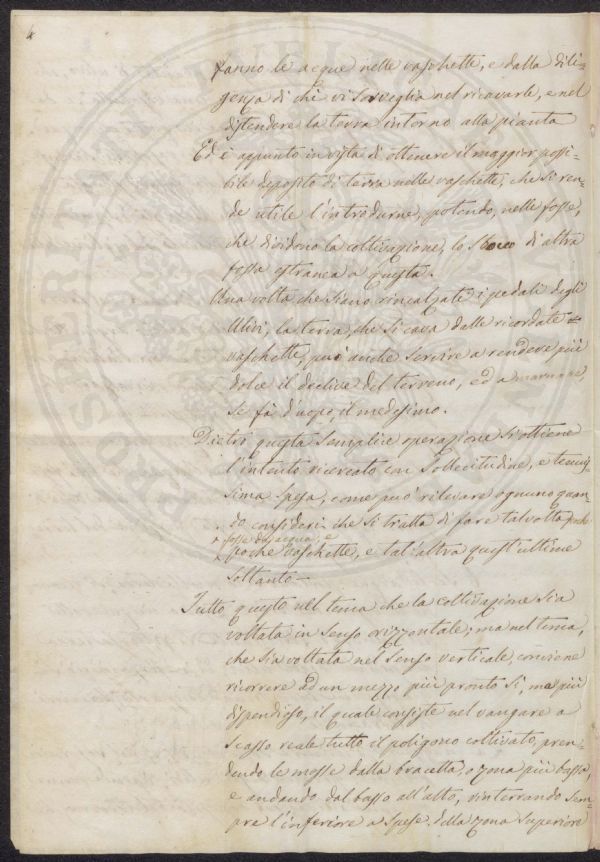 4
fanno le acque nelle vaschette, e dalla dili-
genza di chi vi sorveglia nel ricavarle, e nel
distendere la terra intorno alla pianta
Ed è appunto in vista di ottenere il maggior possi-
bile deposito di terra nelle vaschette, che si ren-
de utile l'introdurne, potendo, nelle fosse,
che dividono la coltivazione, lo sbocco di altra
fossa estranea a questa.
Una volta che siano rincalzati i pedali degli
Ulivi, la terra, che si cava dalle ricordate
vaschette, può anche servire a rendere più
dolce il declive del terreno, ed a marnare,
se fà d'uopo, il medesimo.
Dietro questa semplice operazione si ottiene
l'intento ricercato con sollecitudine, e tenuis-
sima spesa, come può rilevare ognuno quan-
do consideri che si tratta di fare talvolta poche
fosse da acqua, e
poche vaschette, e tal'altra quest'ultime
soltanto —
Tutto questo nel tema che la coltivazione sia
voltata in senso orizzontale; ma nel tema,
che sia voltata nel senso verticale, conviene
ricorrere ad un mezzo più pronto sì, ma più
dispendioso, il quale consiste nel vangare a
scasso reale tutto il poligono coltivato, pren-
dendo le mosse dalla bracatta, o zona più bassa,
e andando dal basso all'alto, rinterrando sem-
pre l'inferiore a spese della zona superiore
PROSPERITATI PUBLICAE